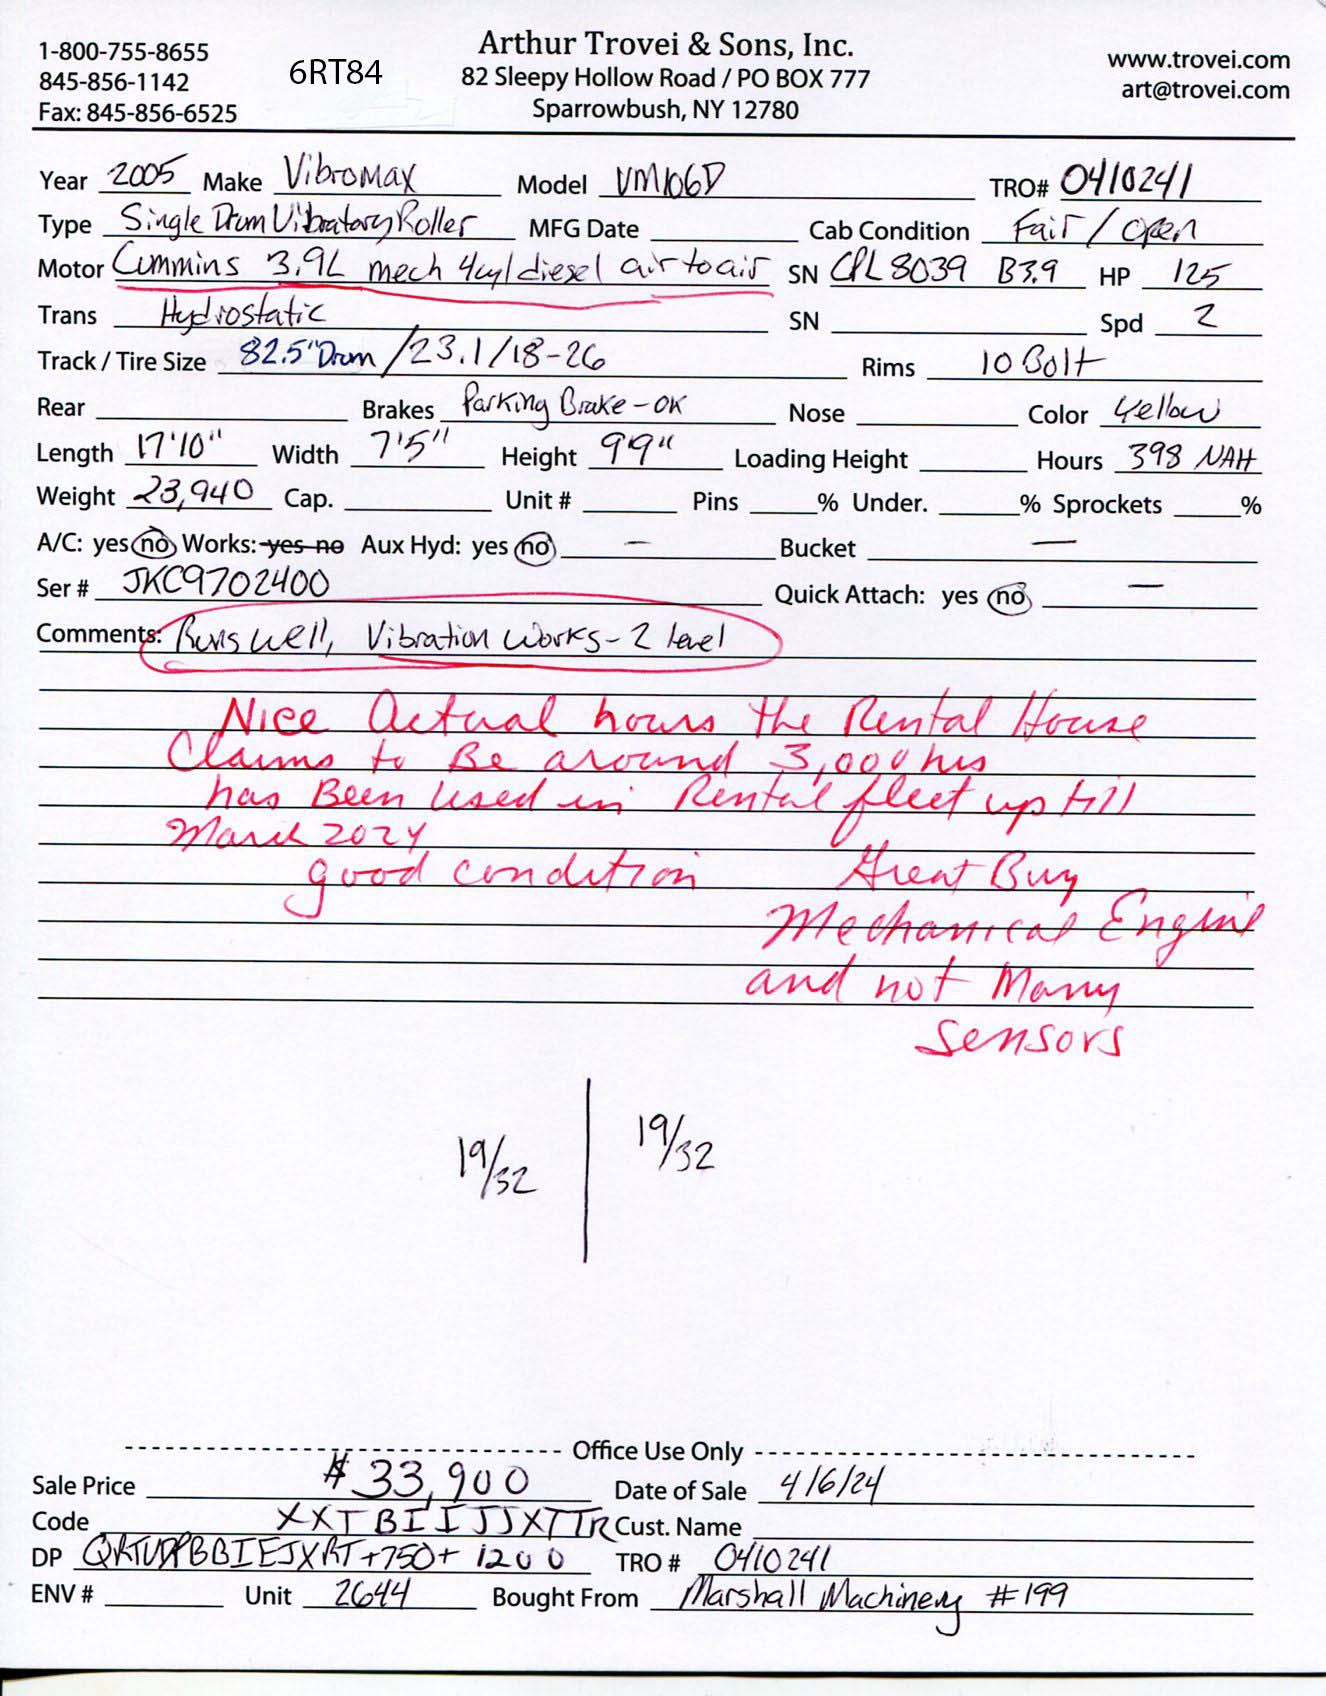 1-800-755-8655
845-856-1142
Fax: 845-856-6525
6RT84
Arthur Trovei & Sons, Inc.
82 Sleepy Hollow Road / PO BOX 777
Sparrowbush, NY 12780
www.trovei.com
art@trovei.com
Year 2005 Make Vibromax Model VM106D TRO# 0410241
Type Single Drum Vibratory Roller MFG Date Cab Condition Fair / Open
Motor Cummins 3.9L mech 4cyl diesel air to air SN CPL 8039 B3.9 HP 125
Trans Hydrostatic SN Spd 2
Track / Tire Size 82.5" Drum / 23.1/18-26 Rims 10 Bolt
Rear Brakes Parking Brake - OK Nose Color Yellow
Length 17'10" Width 7'5" Height 9'9" Loading Height Hours 398 NAH
Weight 23,940 Cap. Unit # Pins % Under. % Sprockets %
A/C: yes no Works: yes no Aux Hyd: yes no — Bucket —
Ser # JKC9702400 Quick Attach: yes no —
Comments: Runs well, Vibration Works - 2 level
Nice Actual hours the Rental House
Claims to Be around 3,000 hrs
has Been Used in Rental fleet up till
March 2024
good condition Great Buy
Mechanical Engine
and not Many
Sensors
19/32 19/32
Office Use Only
Sale Price $33,900 Date of Sale 4/6/24
Code XXTBIIJJXTTR Cust. Name
DP +750+ 1200 TRO # 0410241
ENV # Unit 2644 Bought From Marshall Machinery #199